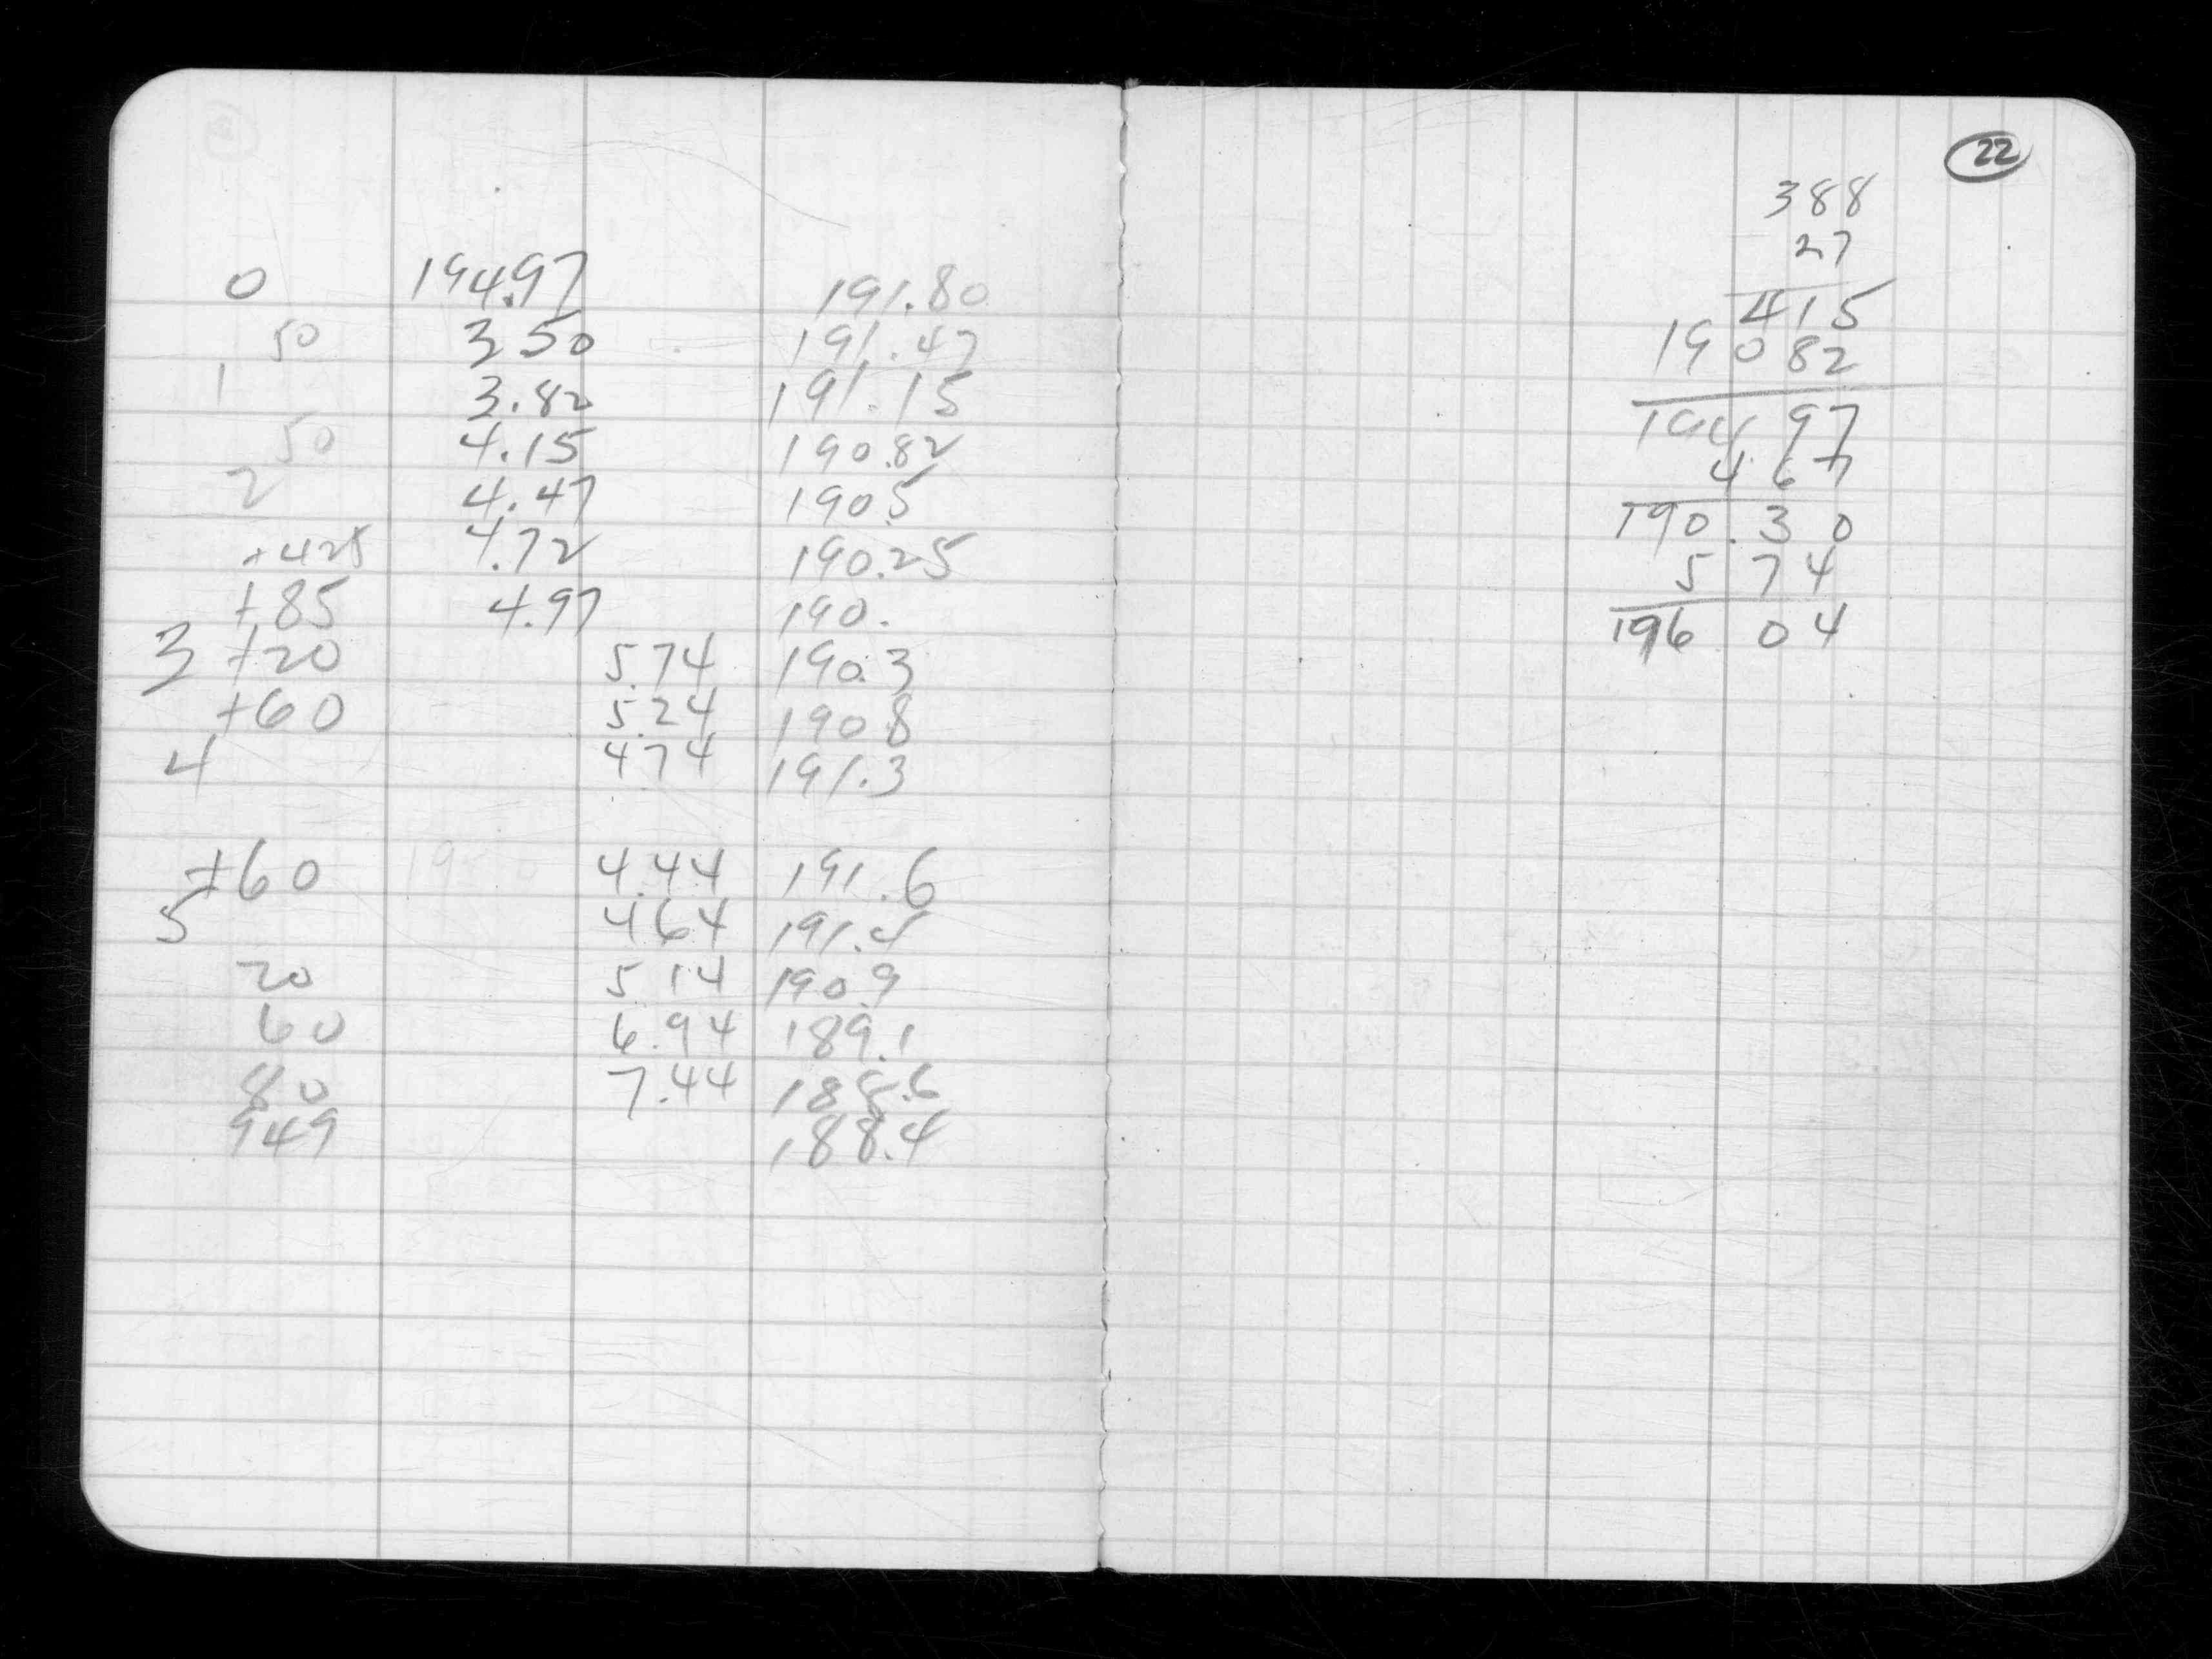 0 194.97 191.80
50 3.50 191.47
1 3.82 191.15
50 4.15 190.82
2 4.47 190.5
+42.5 4.72 190.25
+85 4.97 190.
3 +20 5.74 190.3
+60 5.24 190.8
4 4.74 191.3
+60 4.44 191.6
5 4.64 191.4
20 5.14 190.9
60 6.94 189.1
80 7.44 188.6
949 188.4
22
388
27
415
190 82
194.97
4 67
190.30
5 74
196 04